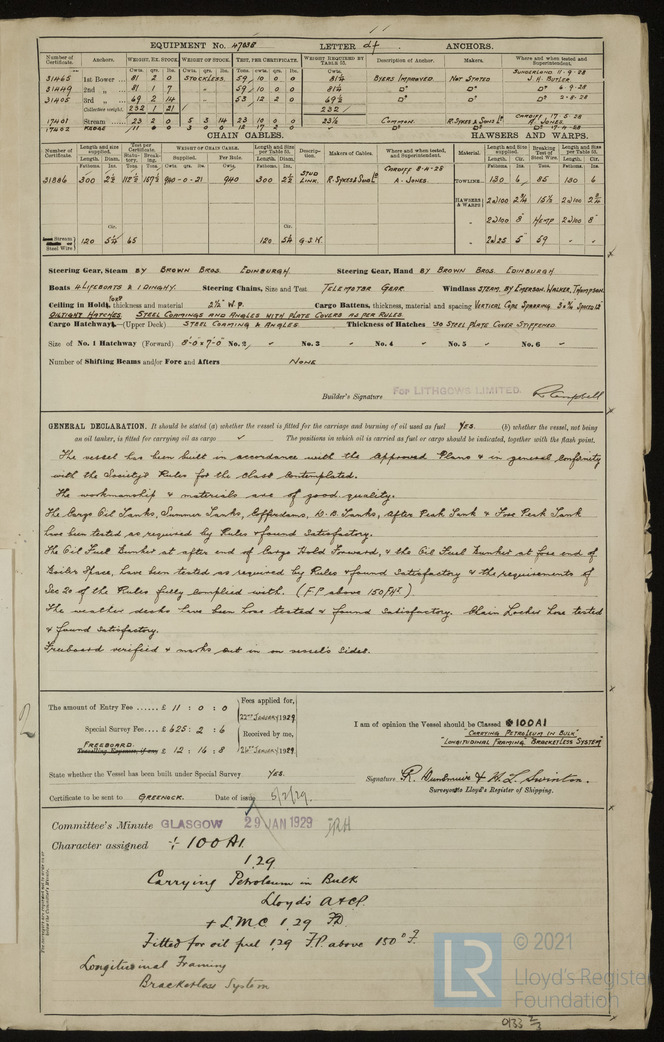 EQUIPMENT No. 47038 LETTER d† ANCHORS.
Number of Certificate. Anchors. WEIGHT, EX. STOCK. WEIGHT OF STOCK. TEST, PER CERTIFICATE. WEIGHT REQUIRED BY TABLE 53. Description of Anchor. Makers. Where and when tested and Superintendent.
Cwts. qrs. lbs. Cwts. qrs. lbs. Tons. cwts. qrs. lbs. Cwts.
31465 1st Bower 81 2 0 STOCKLESS. 59 10 0 0 81¼ BYERS IMPROVED NOT STATED SUNDERLAND 11-9-28 J. H. BUTLER
31449 2nd „ 81 1 7 „ 59 10 0 0 81¼ Do Do Do 6-9-28
31405 3rd „ 69 2 14 „ 53 12 2 0 69½ Do Do Do 2-8-28
Collective weight. 232 1 21 232
17401 Stream 23 2 0 5 3 14 23 10 0 0 23½ COMMON. R. SYKES & SONS LD CARDIFF 17.5.28 A. JONES.
17402 KEDGE 11 0 0 3 0 12 17 2 0 Do Do Do 17-4-28
CHAIN CABLES. HAWSERS AND WARPS.
Number of Certificate. Length and size supplied. Test per Certificate. WEIGHT OF CHAIN CABLE. Length and Size per Table 53. Description. Makers of Cables. Where and when tested, and Superintendent. Material Length and Size supplied. Breaking Test of Steel Wire. Length and Size per Table 53.
Length. Diam. Statutory. Breaking. Supplied. Per Rule. Length. Diam. Length. Cir. Length. Cir.
Fathoms. Ins. Tons. Tons. Cwts. qrs. lbs. Cwts. Fathoms. Ins. Fathoms. Ins. Tons. Fathoms. Ins.
31886 300 2½ 112½ 157½ 940-0-21 940 300 2½ STUD LINK. R. SYKES & SONS LD CARDIFF 8-11-28 A. JONES. TOWLINE 130 6 85 130 6
HAWSERS & WARPS 2@100 2¾ 15½ 2@100 2¾
„ 2@100 8 HEMP 2@100 8
Stream Steel Wire 120 5¼ 65 120 5¼ G.S.W. „ 2@25 5 59 „ „
Steering Gear, Steam BY BROWN BROS. EDINBURGH Steering Gear, Hand BY BROWN BROS. EDINBURGH
Boats 4 LIFEBOATS & 1 DINGHY. Steering Chains, Size and Test TELEMOTOR GEAR. Windlass STEAM, BY EMERSON, WALKER, THOMPSON.
Ceiling in Hold, FORD thickness and material 2½" W.P. Cargo Battens, thickness, material and spacing VERTICAL
OILTIGHT HATCHES. STEEL COAMINGS AND ANGLES WITH PLATE COVERS AS PER RULES.
Cargo Hatchways.—(Upper Deck) STEEL COAMING & ANGLES. Thickness of Hatches .30 STEEL PLATE COVER STIFFENED.
Size of No. 1 Hatchway (Forward) 8'-0"x7'-0" No. 2, „ No. 3 „ No. 4 „ No. 5 „ No. 6 „
Number of Shifting Beams and/or Fore and Afters NONE
Builder's Signature FOR LITHGOWS LIMITED. R Campbell
GENERAL DECLARATION. It should be stated (a) whether the vessel is fitted for the carriage and burning of oil used as fuel YES. (b) whether the vessel, not being
an oil tanker, is fitted for carrying oil as cargo ✓ The positions in which oil is carried as fuel or cargo should be indicated, together with the flash point.
The vessel has been built in accordance with the Approved Plans & in general conformity
with the Society's Rules for the Class Contemplated.
The workmanship & materials are of good quality.
The Cargo Oil Tanks, Summer Tanks, Cofferdams, D.B. Tanks, After Peak Tank & Fore Peak Tank
have been tested as required by Rules & found Satisfactory.
The Oil Fuel Bunker at after end of Cargo Hold Forward, & the Oil Fuel Bunker at fore end of
Boiler Space, have been tested as required by Rules & found Satisfactory & the requirements of
Sec 20 of the Rules fully complied with. (F.P. above 150°FHT)
The weather decks have been hose tested & found Satisfactory. Chain Locker hose tested
& found Satisfactory.
Freeboard verified & marks cut in on vessel's sides.
The amount of Entry Fee ...... £ 11 : 0 : 0 Fees applied for, 22ND JANUARY 1929
Special Survey Fee .... £ 625 : 2 : 6 Received by me,
FREEBOARD £ 12 : 16 : 8 JANUARY 1929
I am of opinion the Vessel should be Classed ✠100A1
"CARRYING PETROLEUM IN BULK"
"LONGITUDINAL FRAMING BRACKETLESS SYSTEM"
State whether the Vessel has been built under Special Survey YES.
Signature R. Dunsmuir & H. L. Swinton.
Surveyors to Lloyd's Register of Shipping.
Certificate to be sent to GREENOCK. Date of issue 5/2/29.
Committee's Minute GLASGOW 29 JAN 1929
Character assigned + 100A1
1.29
Carrying Petroleum in Bulk
Lloyd's A&CP
+ L.M.C. 1.29 FD
Fitted for oil fuel 1.29 F.P. above 150°F.
Longitudinal Framing
Bracketless System
LR © 2021
Lloyd's Register
Foundation